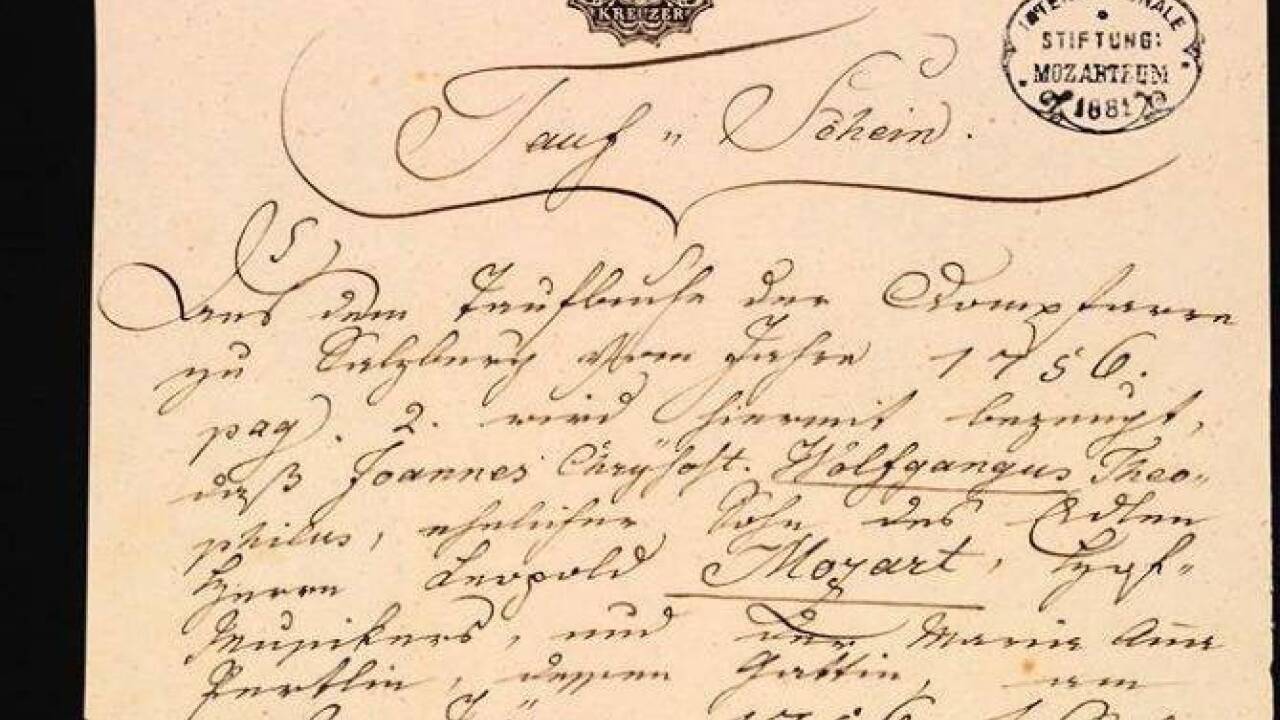 KREUZER
INTERNATIONALE
STIFTUNG:
MOZARTEUM
1881
Tauf " Schein.
Aus dem Taufbuche der Dompfarre
zu Salzburg vom Jahre 1756.
pag. 2. wird hiermit bezeugt,
daß Joannes Chrÿsost. Wolfgangus Theo-
philus, ehelicher Sohn des Edlen
Herrn Leopold Mozart, Hof-
Musikers, und der Maria Anna
Pertlin, dessen Gattin, am